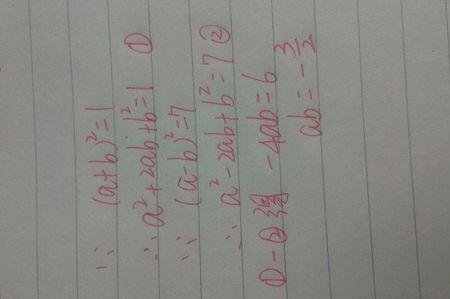 ∵ (a+b)²=1
∴ a²+2ab+b²=1 ①
∵ (a-b)²=7
∴ a²-2ab+b²=7 ②
①-②得 -4ab=6
ab=-3/2